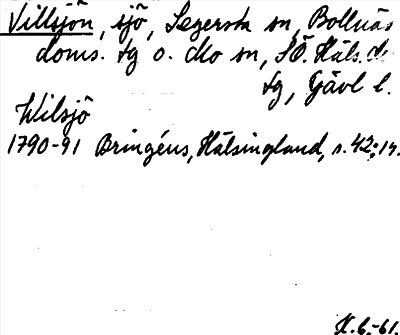 Villsjön, sjö, Segersta sn, Bollnäs
doms. tg o. Mo sn, SÖ. Häls. d.
tg, Gävl l.
Wilsjö
1790-91 Bringéus, Hälsingland, s. 42; 14.
H. 6.-61.